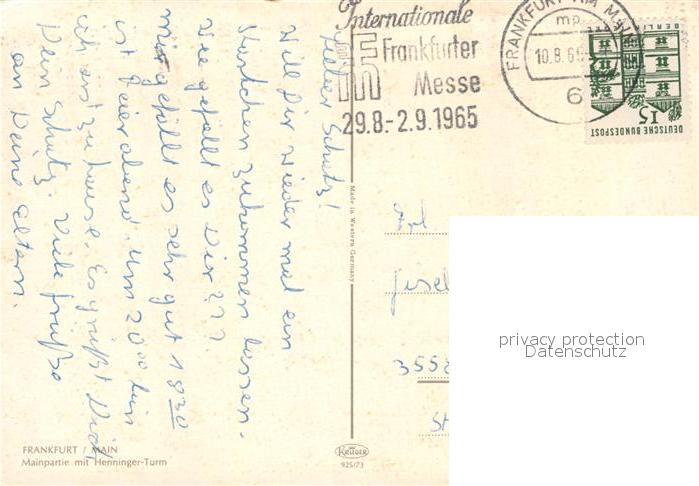 Lieber Schatz!
Will Dir wieder mal ein
Kärtchen zukommen lassen.
Wie gefällt es Dir???
mir gefällt es sehr gut 18³⁰
ist Feierabend. um 20⁰⁰ bin
ich erst zu hause. Es grüßt Dich
Dein Schatz. Viele Grüße
an Deine Eltern.
FRANKFURT / MAIN
Mainpartie mit Henninger-Turm
Internationale
Frankfurter
Messe
29.8.-2.9.1965
FRANKFURT AM MAIN
mp
10.8.65
6
15
DEUTSCHE BUNDESPOST
BERLIN
Made in Western Germany
KRÜGER
925/73
Frl
3558
privacy protection
Datenschutz